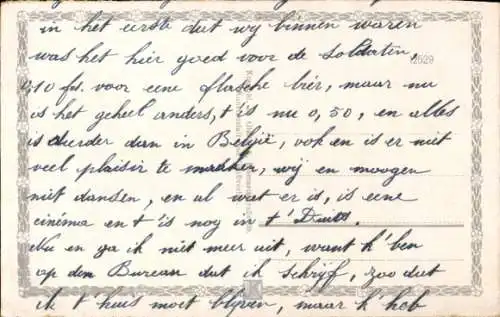 in het eerste dat wy binnen waren
was het hier goed voor de soldaten,
0,10 fr. voor eene flasche bier, maar nu
is het geheel anders, t is nu 0,50, en alles
is dierder dan in België, ook en is er niet
veel plaisir te maken, wij en moogen
niet dansen, en al wat er is, is eene
cinéma en t'is nog in t' Duits.
Nu en ga ik niet meer uit, want k'ben
op den Bureau dat ik schrijf, zoo dat
ik t' huis moet blijven, maar k' heb
12629